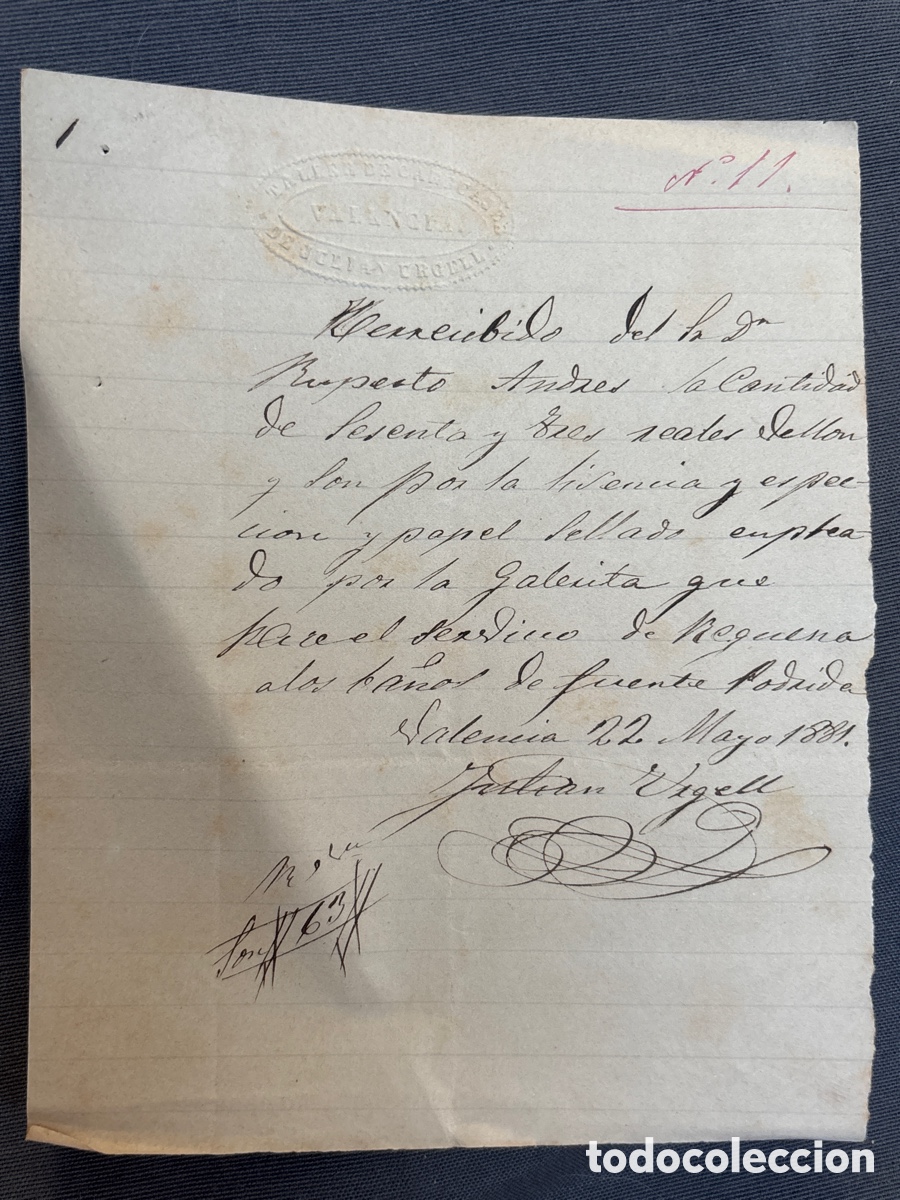 Nº 11.
TALLER DE CARRUAJES
VALENCIA
DE JULIAN URGELL
Herrecibido del Sr Dn
Ruperto Andres la Cantidad
de Sesenta y tres reales Vellon
y son por la lisencia y espec-
cion y papel Sellado emplea-
do por la Galerita que
hace el serdico de Requena
alos baños de fuente Podrida
Valencia 22 Mayo 1881.
Julian Urgell
Rs Vn
Son 63
todocoleccion